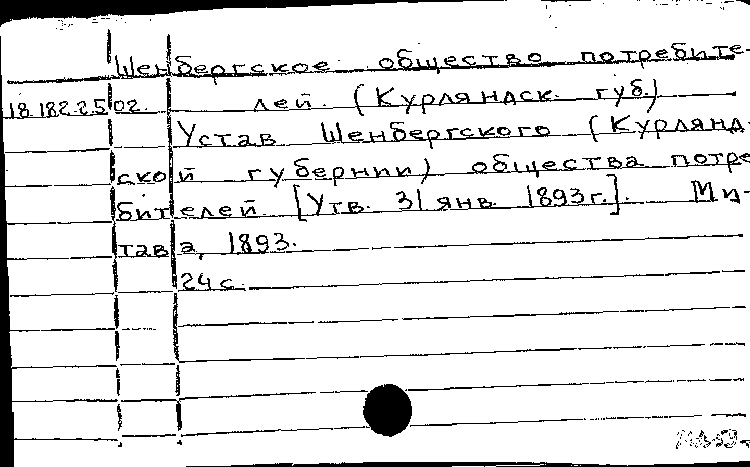 Шенбергское общество потребите-
18.182.2.502. лей. (Курляндск. губ.)
Устав Шенбергского (Курлянд-
ской губернии) общества потре-
бителей. [Утв. 31 янв. 1893г.]. Ми-
тава, 1893.
24 с.